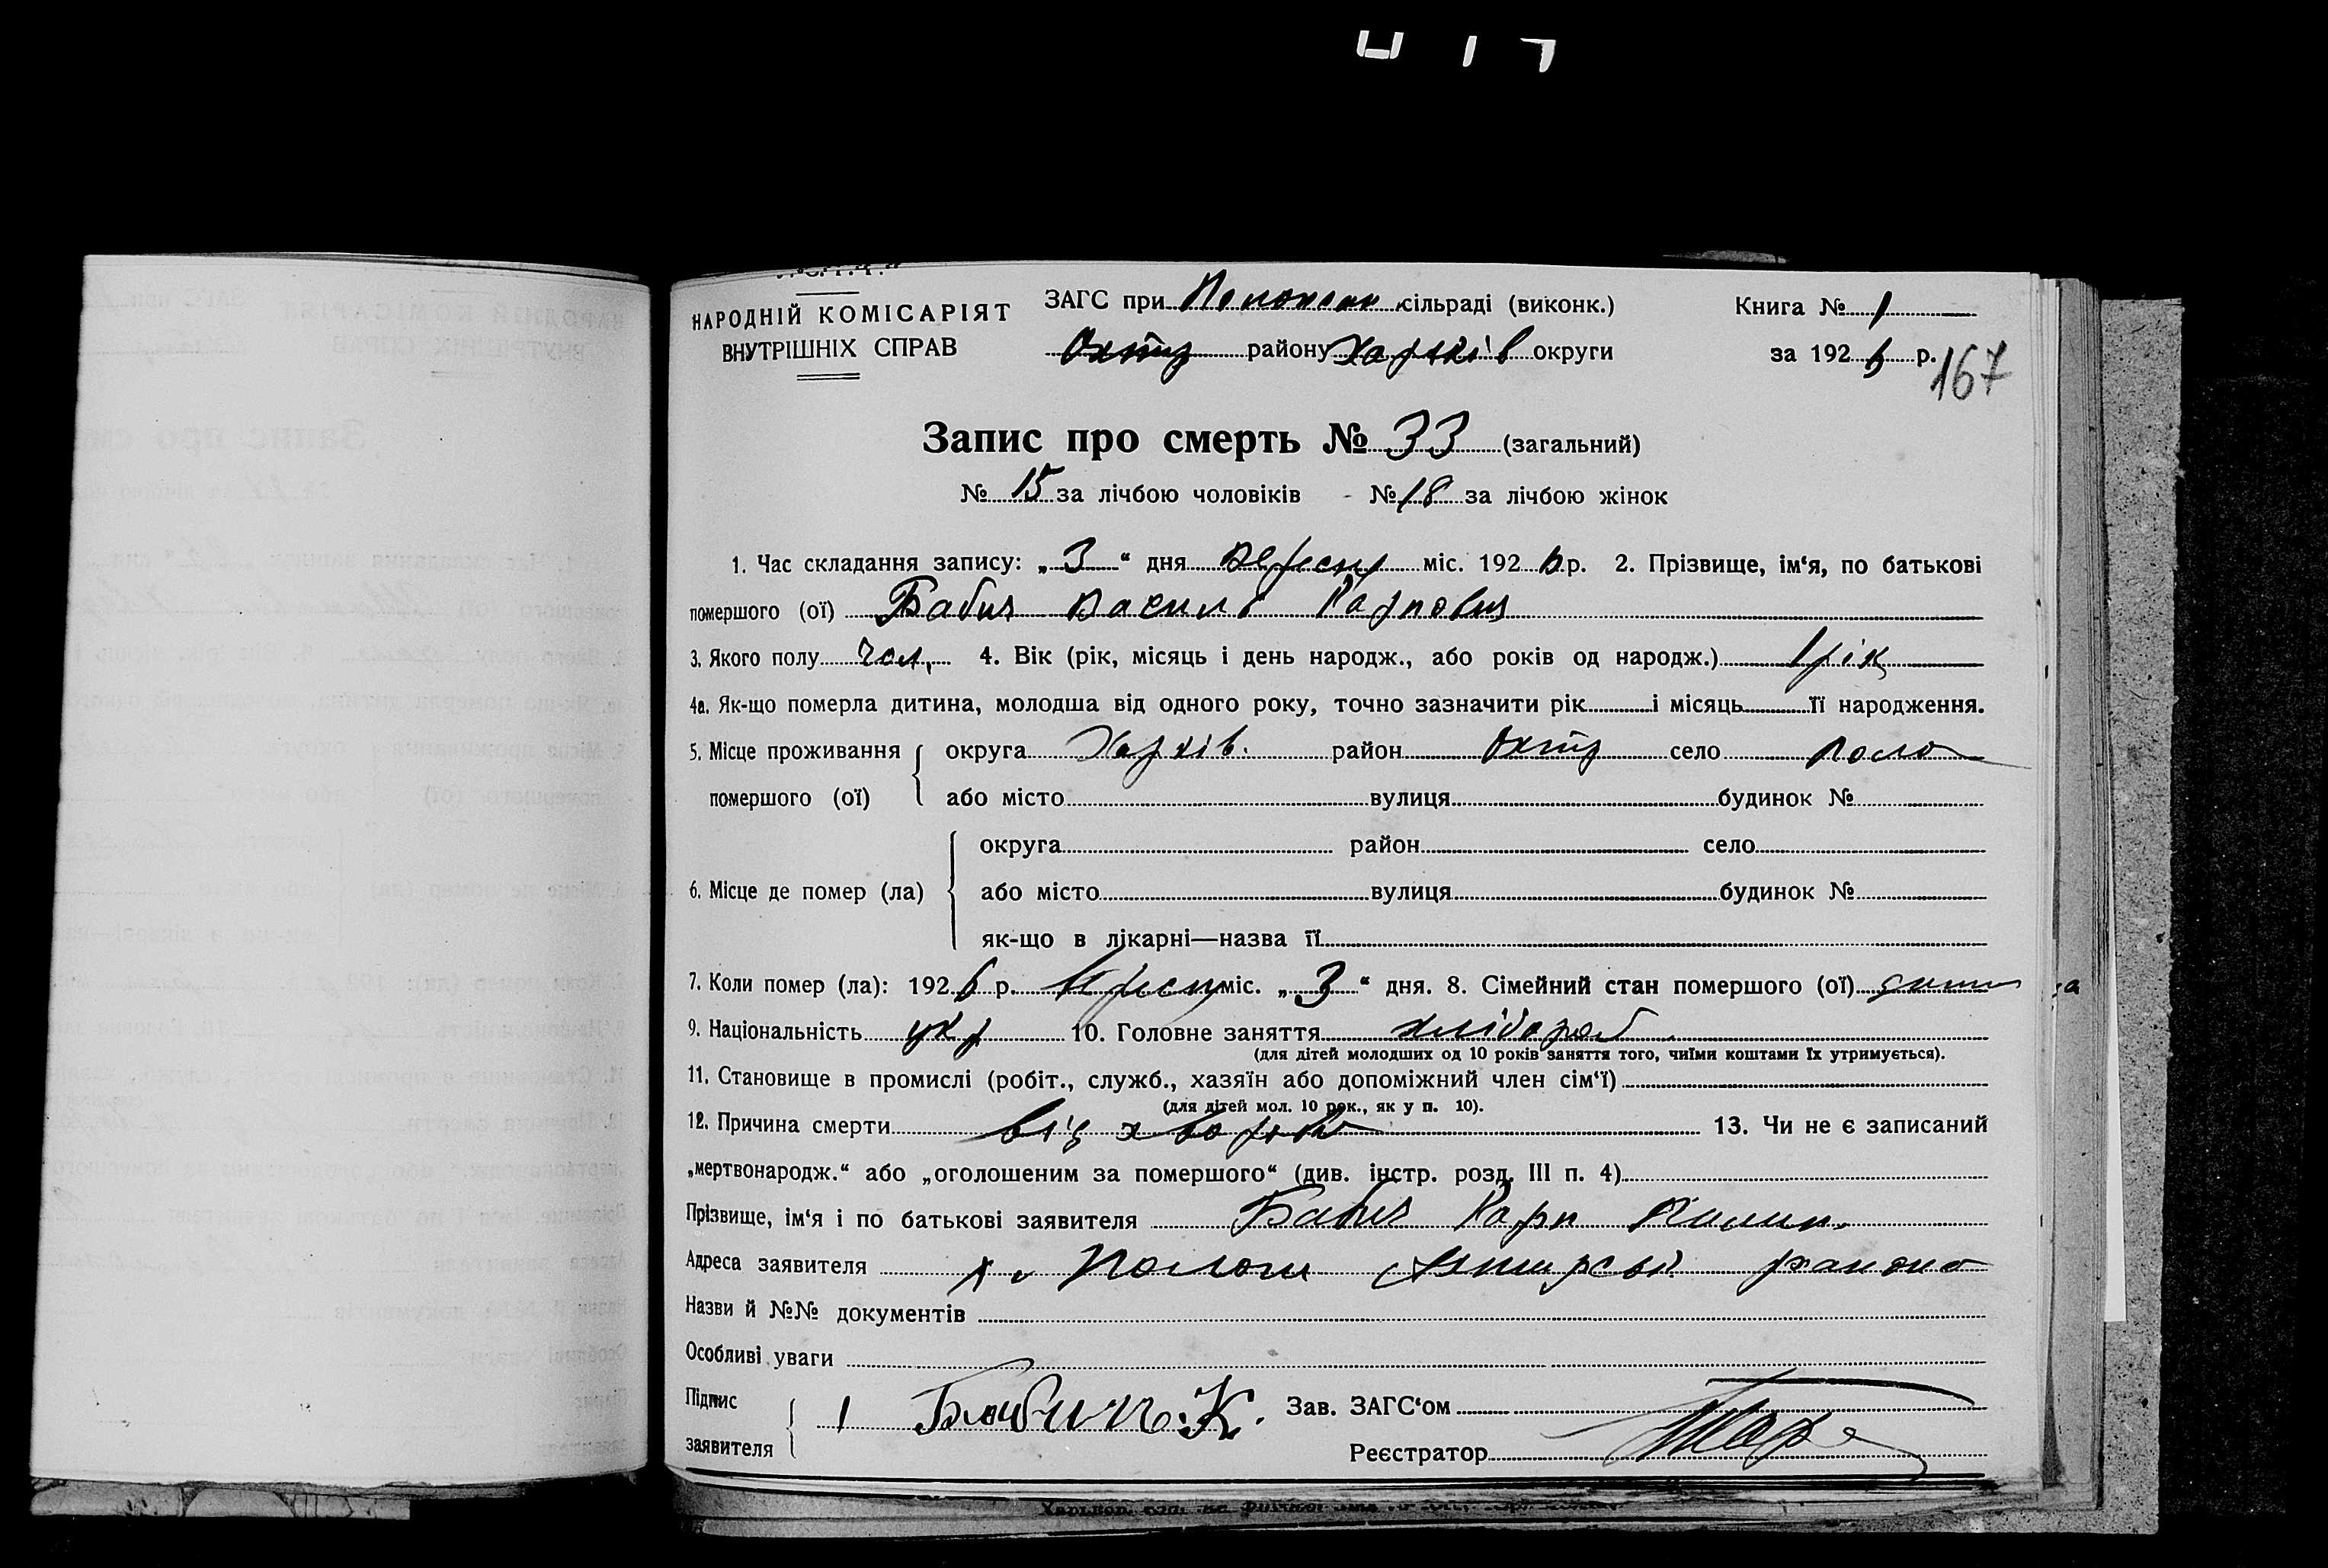 НАРОДНІЙ КОМІСАРІЯТ
ВНУТРІШНІХ СПРАВ
ЗАГС при сільраді (виконк.)
Охтир району Харків округи
Книга № 1
за 1926 р.
167
Запис про смерть № 33 (загальний)
№ 15 за лічбою чоловіків - № 18 за лічбою жінок
1. Час складання запису: „3“ дня вересн міс. 1926 р. 2. Прізвище, ім‘я, по батькові
помершого (ої) Бабич Василь Карпович
3. Якого полу чол. 4. Вік (рік, місяць і день народж., або років од народж.) 1 рік
4а. Як-що померла дитина, молодша від одного року, точно зазначити рік і місяць її народження.
5. Місце проживання помершого (ої) округа Харків. район Охтир село
або місто вулиця будинок №
6. Місце де помер (ла) округа район село
або місто вулиця будинок №
як-що в лікарні—назва її
7. Коли помер (ла): 1926 р. вересн міс. „3“ дня. 8. Сімейний стан помершого (ої) дитина
9. Національність укр 10. Головне заняття хлібороб
(для дітей молодших од 10 років заняття того, чиїми коштами їх утримується).
11. Становище в промислі (робіт., служб., хазяїн або допоміжний член сім‘ї)
(для дітей мол. 10 рок., як у п. 10).
12. Причина смерти від хвороби 13. Чи не є записаний
„мертвонародж.“ або „оголошеним за помершого“ (див. інстр. розд. III п. 4)
Прізвище, ім‘я і по батькові заявителя Бабич Карп
Адреса заявителя х. району
Назви й №№ документів
Особливі уваги
Підпис заявителя 1 Бабич К. Зав. ЗАГС‘ом
Реєстратор